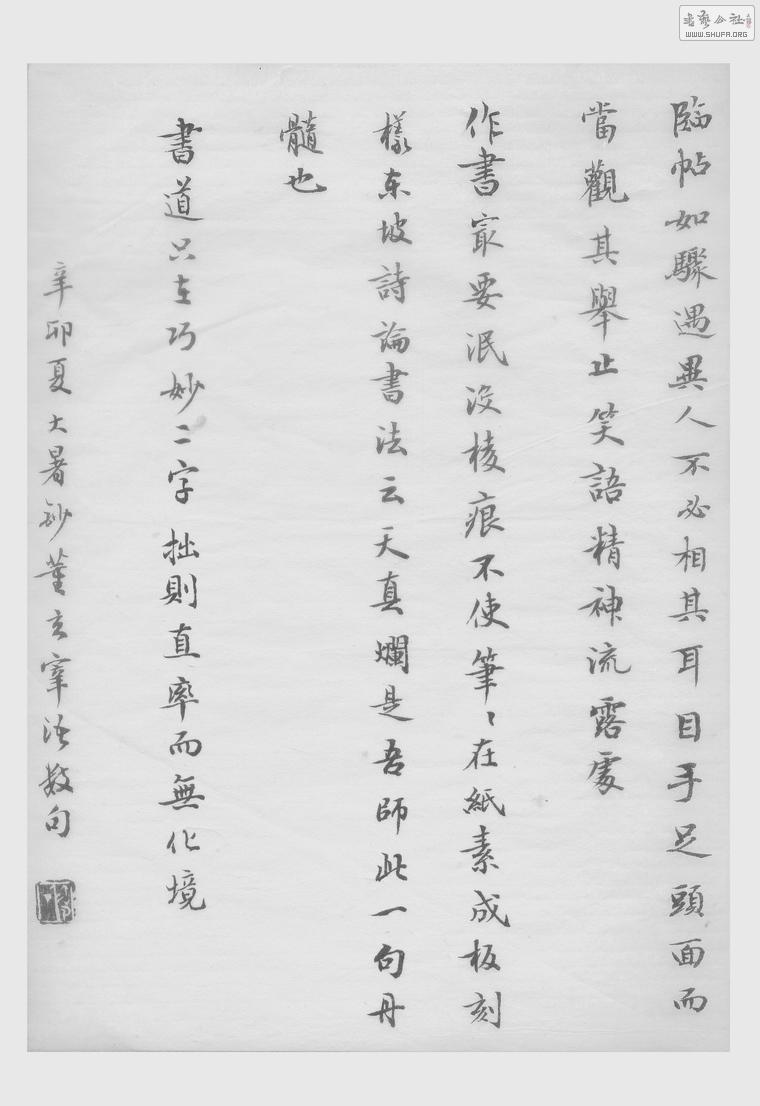 臨帖如驟遇異人不必相其耳目手足頭面而
當觀其舉止笑語精神流露處
作書宷要泯沒棱痕不使筆〻在紙素成板刻
樣東坡詩論書法云天真爛是吾師此一句丹
髓也
書道只在巧妙二字拙則直率而無化境
辛卯夏大暑鈔董玄宰語數句
WWW.SHUFA.ORG